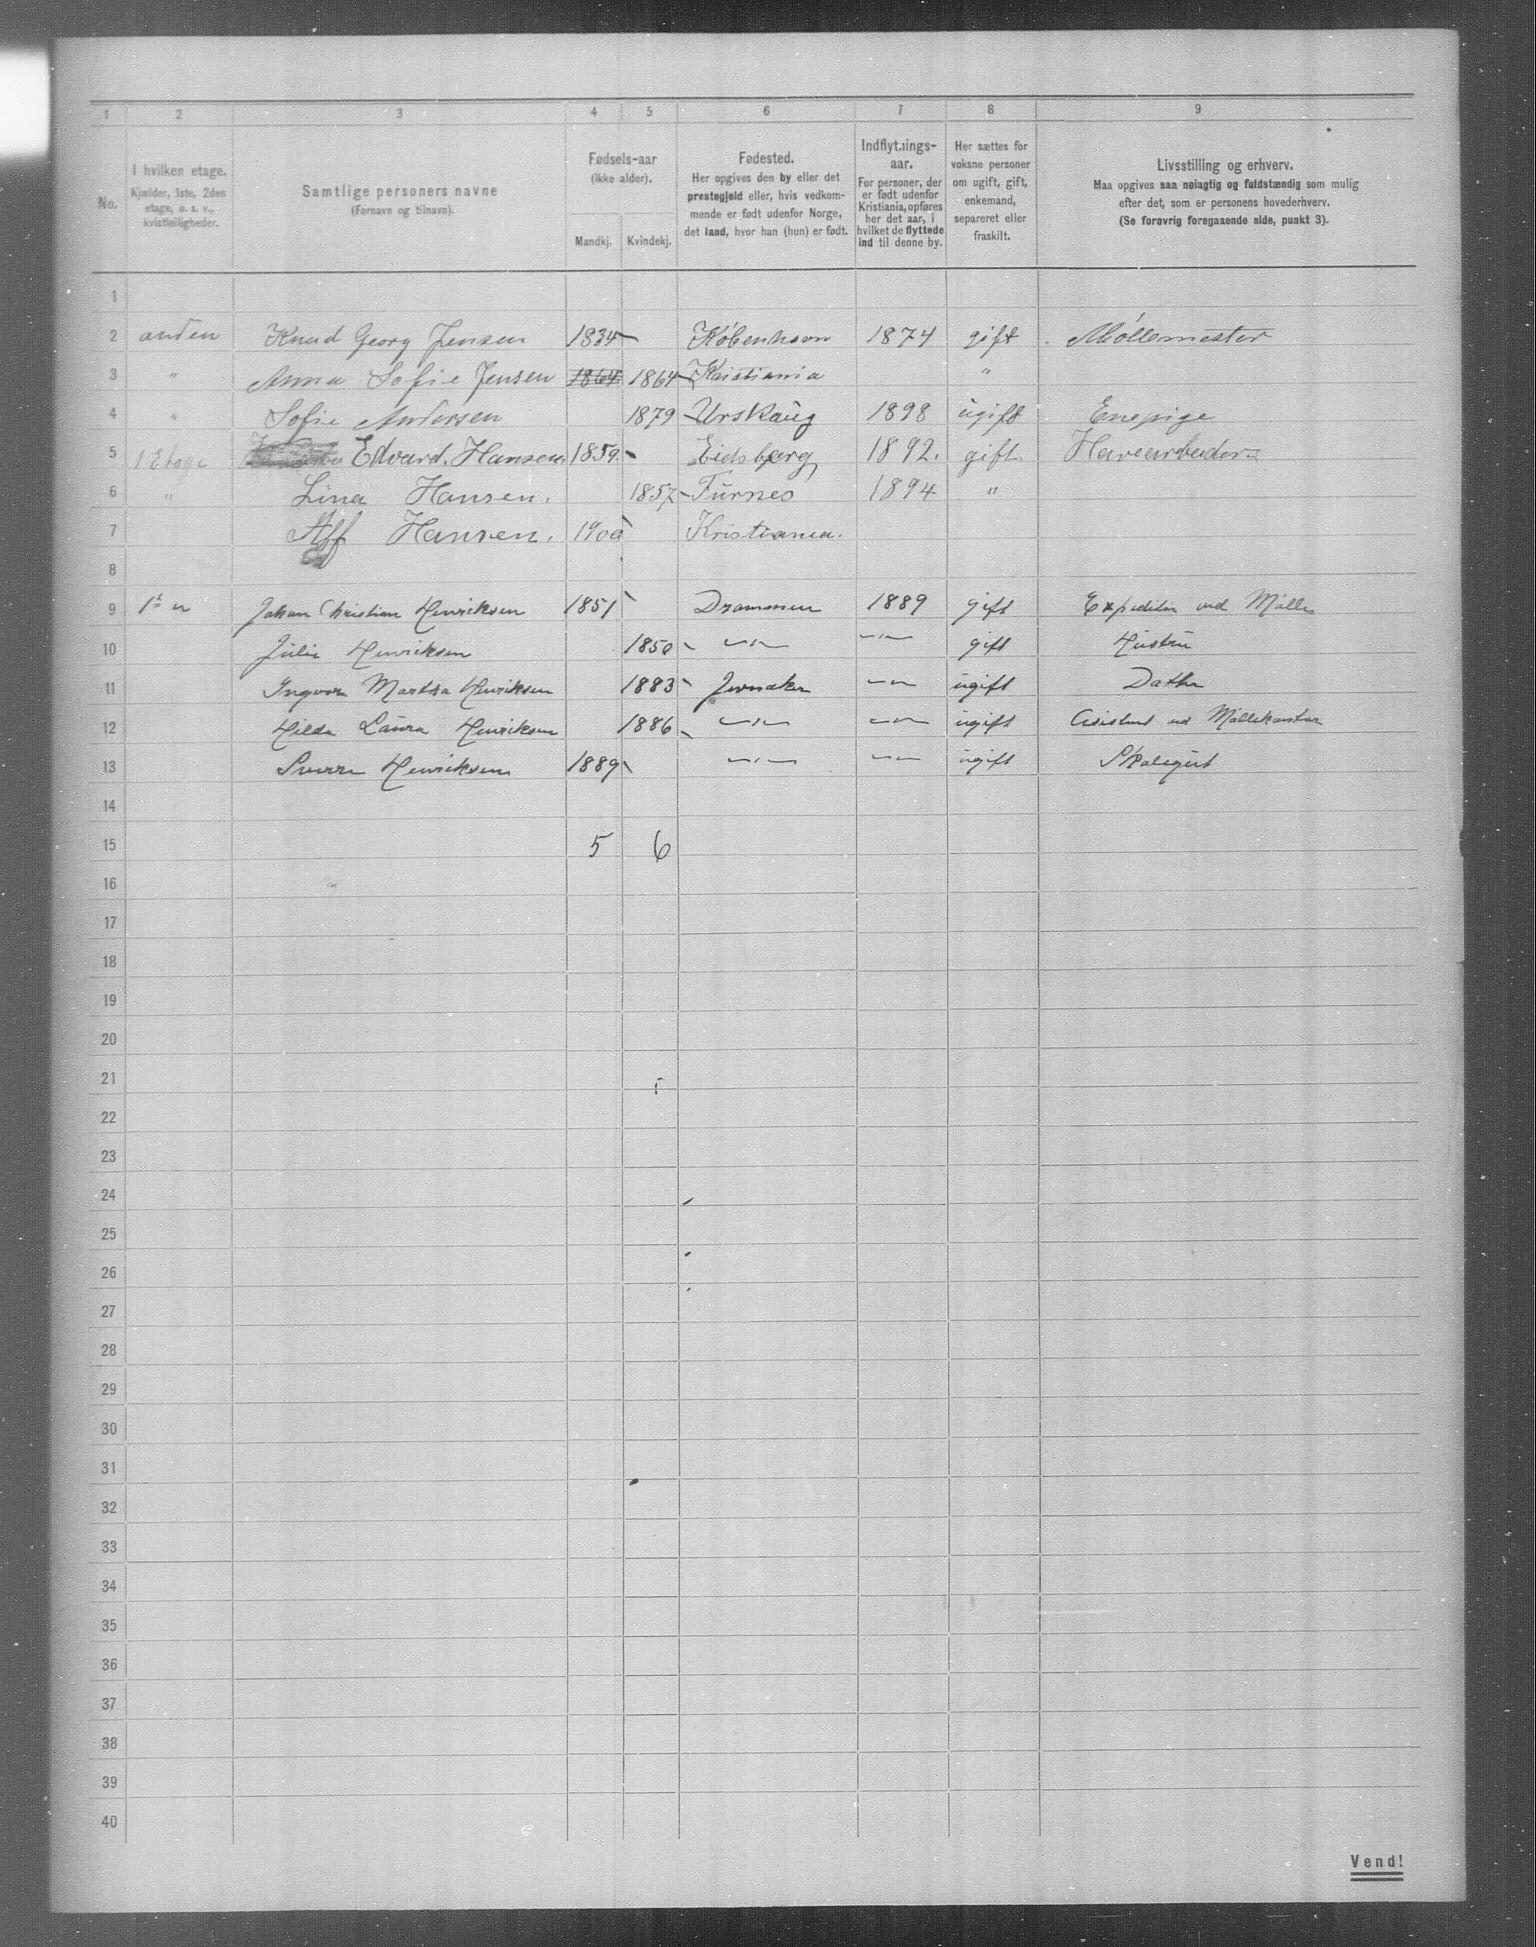 1 2 3 4 5 6 7 8 9
No. I hvilken etage. Kjælder, 1ste, 2den etage, o. s. v., kvistleiligheder. Samtlige personers navne (Fornavn og tilnavn). Fødsels-aar (Ikke alder). Mandkj. Kvindekj. Fødested. Her opgives den by eller det prestegjeld eller, hvis vedkommende er født udenfor Norge, det land, hvor han (hun) er født. Indflytnings-aar. For personer, der er født udenfor Kristiania, opføres her det aar, i hvilket de flyttede ind til denne by. Her sættes for voksne personer om ugift, gift, enkemand, separeret eller fraskilt. Livsstilling og erhverv. Maa opgives saa nøiagtig og fuldstændig som mulig efter det, som er personens hovederhverv. (Se forøvrig foregaaende side, punkt 3).
1
2 anden Knud Georg Jensen 1834 København 1874 gift Møllemester
3 " Anna Sofie Jensen 1864 1864 Kristiania "
4 " Sofie Andersen 1879 Urskaug 1898 ugift Enepige
5 1 Etage Edvard. Hansen 1859. Eidsberg 1892. gift Havearbeder
6 " Lina Hansen. 1857 Furnes 1894 "
7 Alf Hansen. 1900 Kristiania.
8
9 1ste Johan Christian Henriksen 1851 Drammen 1889 gift Expeditør ved Mølle
10 Julie Henriksen 1850 —"— —"— gift Hustru
11 Ingvor Martha Henriksen 1883 Jevnaker —"— ugift Datter
12 Hilda Laura Henriksen 1886 —"— —"— ugift Asistent ved Møllekontor
13 Sverre Henriksen 1889 —"— —"— ugift Skolegut
14
15 5 6
16
17
18
19
20
21
22
23
24
25
26
27
28
29
30
31
32
33
34
35
36
37
38
39
40
Vend!